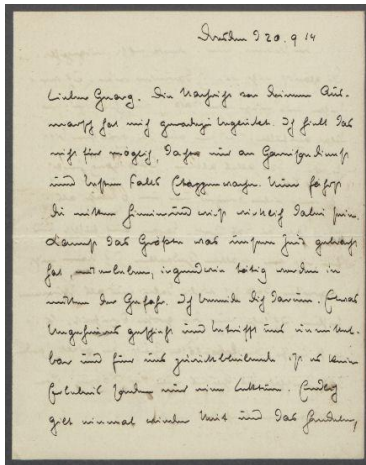 Dresden d 20. 9 14
Lieber Georg. Die Nachricht von deinem Aus-
marsch hat mich geradezu begeistert. Ich hielt das
nicht für möglich, dachte nur an Garnisondienst
und besten Falls Etappenwache. Nun fährst
Du mitten hinein und wirst wirklich dabei sein.
das Größte was unsere Zeit gebracht
hat, miterleben, irgendwie tätig werden in
mitten der Gefahr. Ich beneide dich darum. Etwas
Ungeheures geschieht und betrifft uns unmittel-
bar und für uns zurückbleibende ist es kein
Erlebnis sondern nur eine Lektüre. Endlich
gilt einmal wieder Mut und das Handeln,